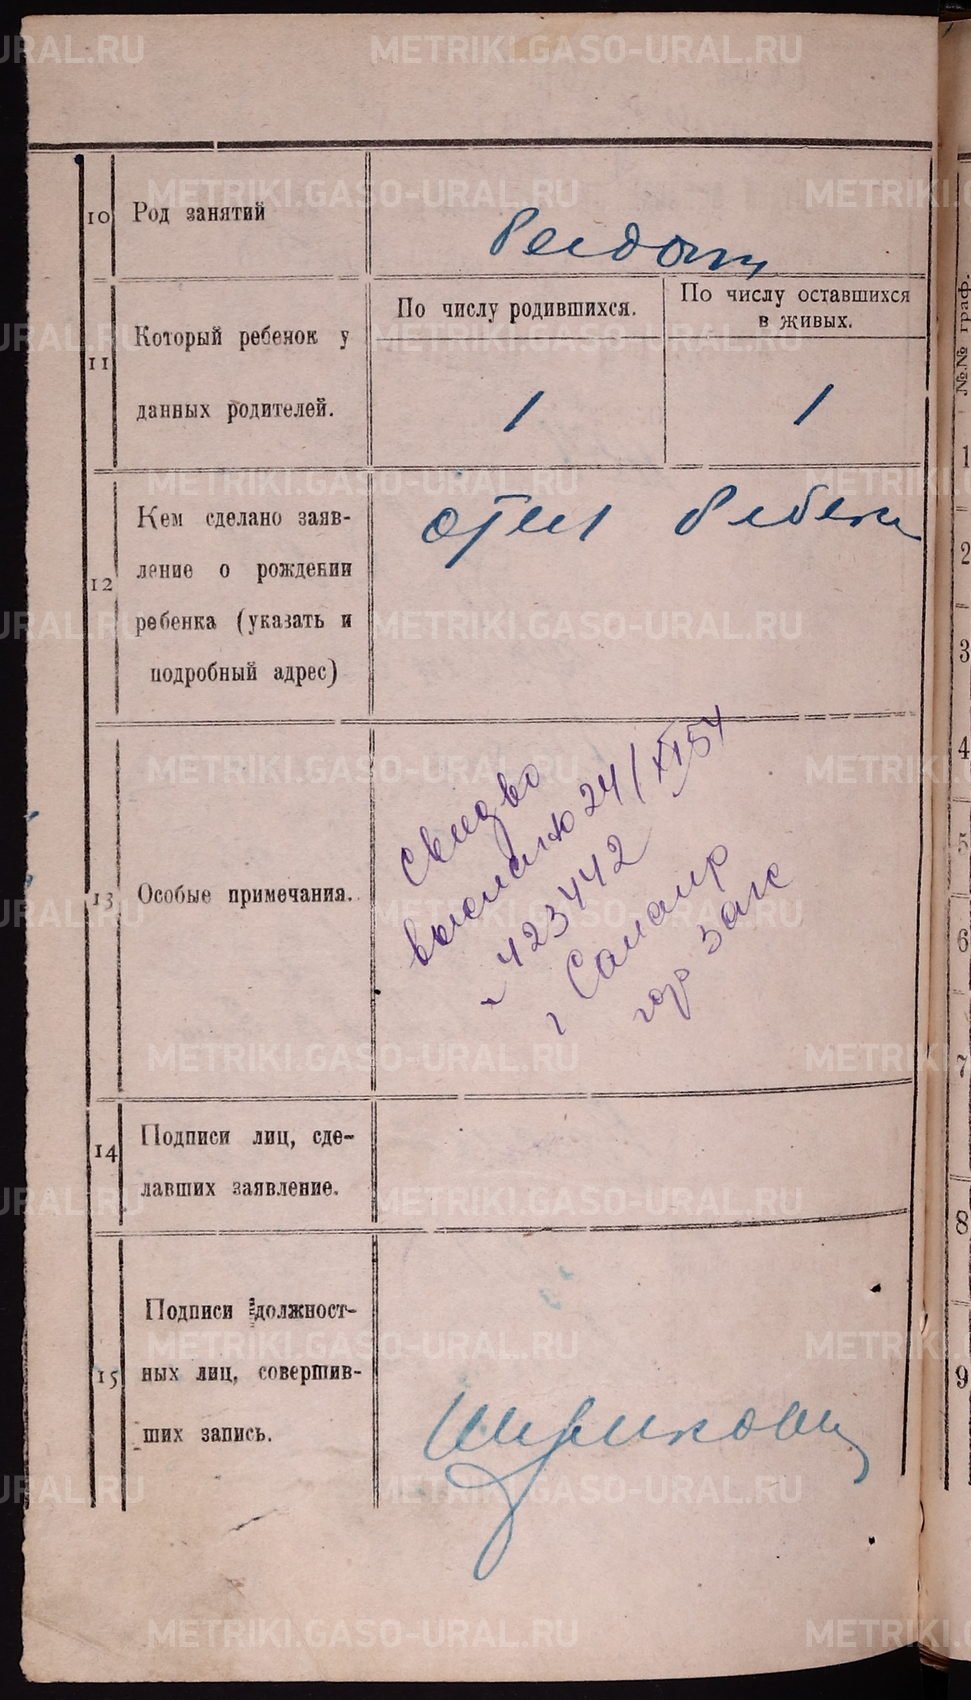 10 Род занятий
11 Который ребенок у
данных родителей.
По числу родившихся.
По числу оставшихся
в живых.
1 1
12 Кем сделано заяв-
ление о рождении
ребенка (указать и
подробный адрес)
отец
13 Особые примечания.
Свид-во
выслано 24/XI 54
423442
г
гор Загс
14 Подписи лиц, сде-
лавших заявление.
15 Подписи должност-
ных лиц, совершив-
ших запись.
№№ граф.
1
2
3
4
5
6
7
8
9
METRIKI.GASO-URAL.RU